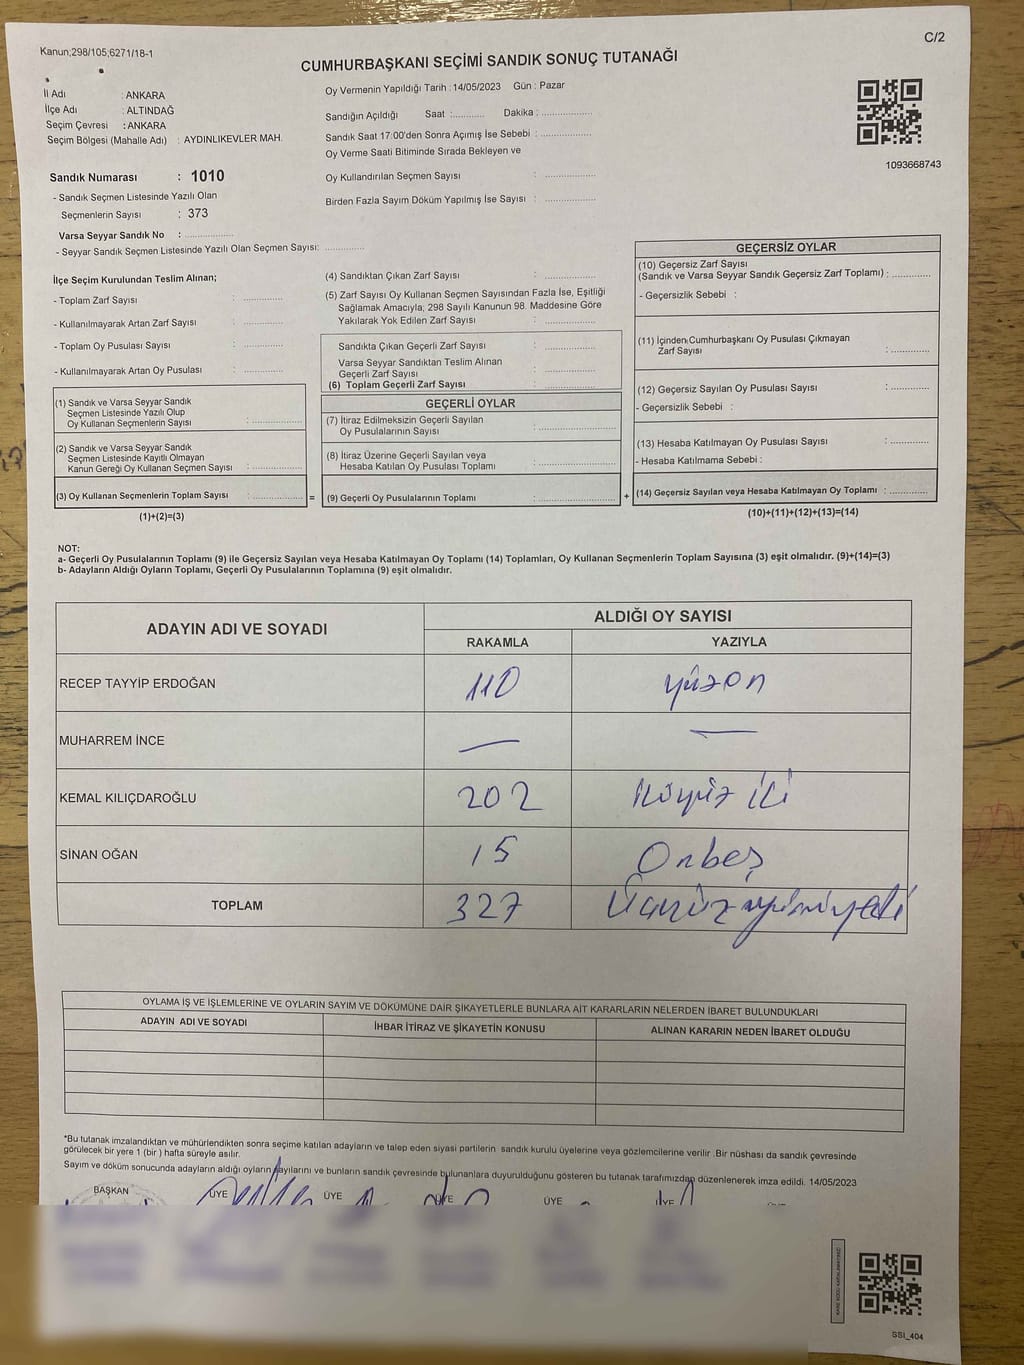 Kanun;298/105;6271/18-1
C/2
CUMHURBAŞKANI SEÇİMİ SANDIK SONUÇ TUTANAĞI
İl Adı : ANKARA
İlçe Adı : ALTINDAĞ
Seçim Çevresi : ANKARA
Seçim Bölgesi (Mahalle Adı) : AYDINLIKEVLER MAH.
Sandık Numarası : 1010
- Sandık Seçmen Listesinde Yazılı Olan
Seçmenlerin Sayısı : 373
Varsa Seyyar Sandık No : ..................
- Seyyar Sandık Seçmen Listesinde Yazılı Olan Seçmen Sayısı: ............
Oy Vermenin Yapıldığı Tarih : 14/05/2023 Gün : Pazar
Sandığın Açıldığı Saat :.......... Dakika : ...............
Sandık Saat 17:00'den Sonra Açımış İse Sebebi : ...............
Oy Verme Saati Bitiminde Sırada Bekleyen ve
Oy Kullandırılan Seçmen Sayısı : ...............
Birden Fazla Sayım Döküm Yapılmış İse Sayısı : ...............
1093668743
İlçe Seçim Kurulundan Teslim Alınan;
- Toplam Zarf Sayısı : ............
- Kullanılmayarak Artan Zarf Sayısı : ............
- Toplam Oy Pusulası Sayısı : ............
- Kullanılmayarak Artan Oy Pusulası : ............
(1) Sandık ve Varsa Seyyar Sandık
Seçmen Listesinde Yazılı Olup
Oy Kullanan Seçmenlerin Sayısı : ...............
(2) Sandık ve Varsa Seyyar Sandık
Seçmen Listesinde Kayıtlı Olmayan
Kanun Gereği Oy Kullanan Seçmen Sayısı : ...............
(3) Oy Kullanan Seçmenlerin Toplam Sayısı : ............... =
(1)+(2)=(3)
(4) Sandıktan Çıkan Zarf Sayısı : ...............
(5) Zarf Sayısı Oy Kullanan Seçmen Sayısından Fazla İse, Eşitliği
Sağlamak Amacıyla; 298 Sayılı Kanunun 98. Maddesine Göre
Yakılarak Yok Edilen Zarf Sayısı : ...............
Sandıkta Çıkan Geçerli Zarf Sayısı : ...............
Varsa Seyyar Sandıktan Teslim Alınan
Geçerli Zarf Sayısı : ...............
(6) Toplam Geçerli Zarf Sayısı : ...............
GEÇERLİ OYLAR
(7) İtiraz Edilmeksizin Geçerli Sayılan
Oy Pusulalarının Sayısı : ...............
(8) İtiraz Üzerine Geçerli Sayılan veya
Hesaba Katılan Oy Pusulası Toplamı : ...............
(9) Geçerli Oy Pusulalarının Toplamı : ............... +
GEÇERSİZ OYLAR
(10) Geçersiz Zarf Sayısı
(Sandık ve Varsa Seyyar Sandık Geçersiz Zarf Toplamı) : ............
- Geçersizlik Sebebi :
(11) İçinden Cumhurbaşkanı Oy Pusulası Çıkmayan
Zarf Sayısı : ............
(12) Geçersiz Sayılan Oy Pusulası Sayısı : ............
- Geçersizlik Sebebi :
(13) Hesaba Katılmayan Oy Pusulası Sayısı : ............
- Hesaba Katılmama Sebebi :
(14) Geçersiz Sayılan veya Hesaba Katılmayan Oy Toplamı : ............
(10)+(11)+(12)+(13)=(14)
NOT:
a- Geçerli Oy Pusulalarının Toplamı (9) ile Geçersiz Sayılan veya Hesaba Katılmayan Oy Toplamı (14) Toplamları, Oy Kullanan Seçmenlerin Toplam Sayısına (3) eşit olmalıdır. (9)+(14)=(3)
b- Adayların Aldığı Oyların Toplamı, Geçerli Oy Pusulalarının Toplamına (9) eşit olmalıdır.
ADAYIN ADI VE SOYADI ALDIĞI OY SAYISI
RAKAMLA YAZIYLA
RECEP TAYYİP ERDOĞAN 110 yüzon
MUHARREM İNCE — —
KEMAL KILIÇDAROĞLU 202 ikiyüz iki
SİNAN OĞAN 15 Onbeş
TOPLAM 327 Üçyüzyirmiyedi
OYLAMA İŞ VE İŞLEMLERİNE VE OYLARIN SAYIM VE DÖKÜMÜNE DAİR ŞİKAYETLERLE BUNLARA AİT KARARLARIN NELERDEN İBARET BULUNDUKLARI
ADAYIN ADI VE SOYADI İHBAR İTİRAZ VE ŞİKAYETİN KONUSU ALINAN KARARIN NEDEN İBARET OLDUĞU
*Bu tutanak imzalandıktan ve mühürlendikten sonra seçime katılan adayların ve talep eden siyasi partilerin sandık kurulu üyelerine veya gözlemcilerine verilir .Bir nüshası da sandık çevresinde
görülecek bir yere 1 (bir ) hafta süreyle asılır.
Sayım ve döküm sonucunda adayların aldığı oyların sayılarını ve bunların sandık çevresinde bulunanlara duyurulduğunu gösteren bu tutanak tarafımızdan düzenlenerek imza edildi. 14/05/2023
BAŞKAN ÜYE ÜYE ÜYE ÜYE ÜYE
SSI_404